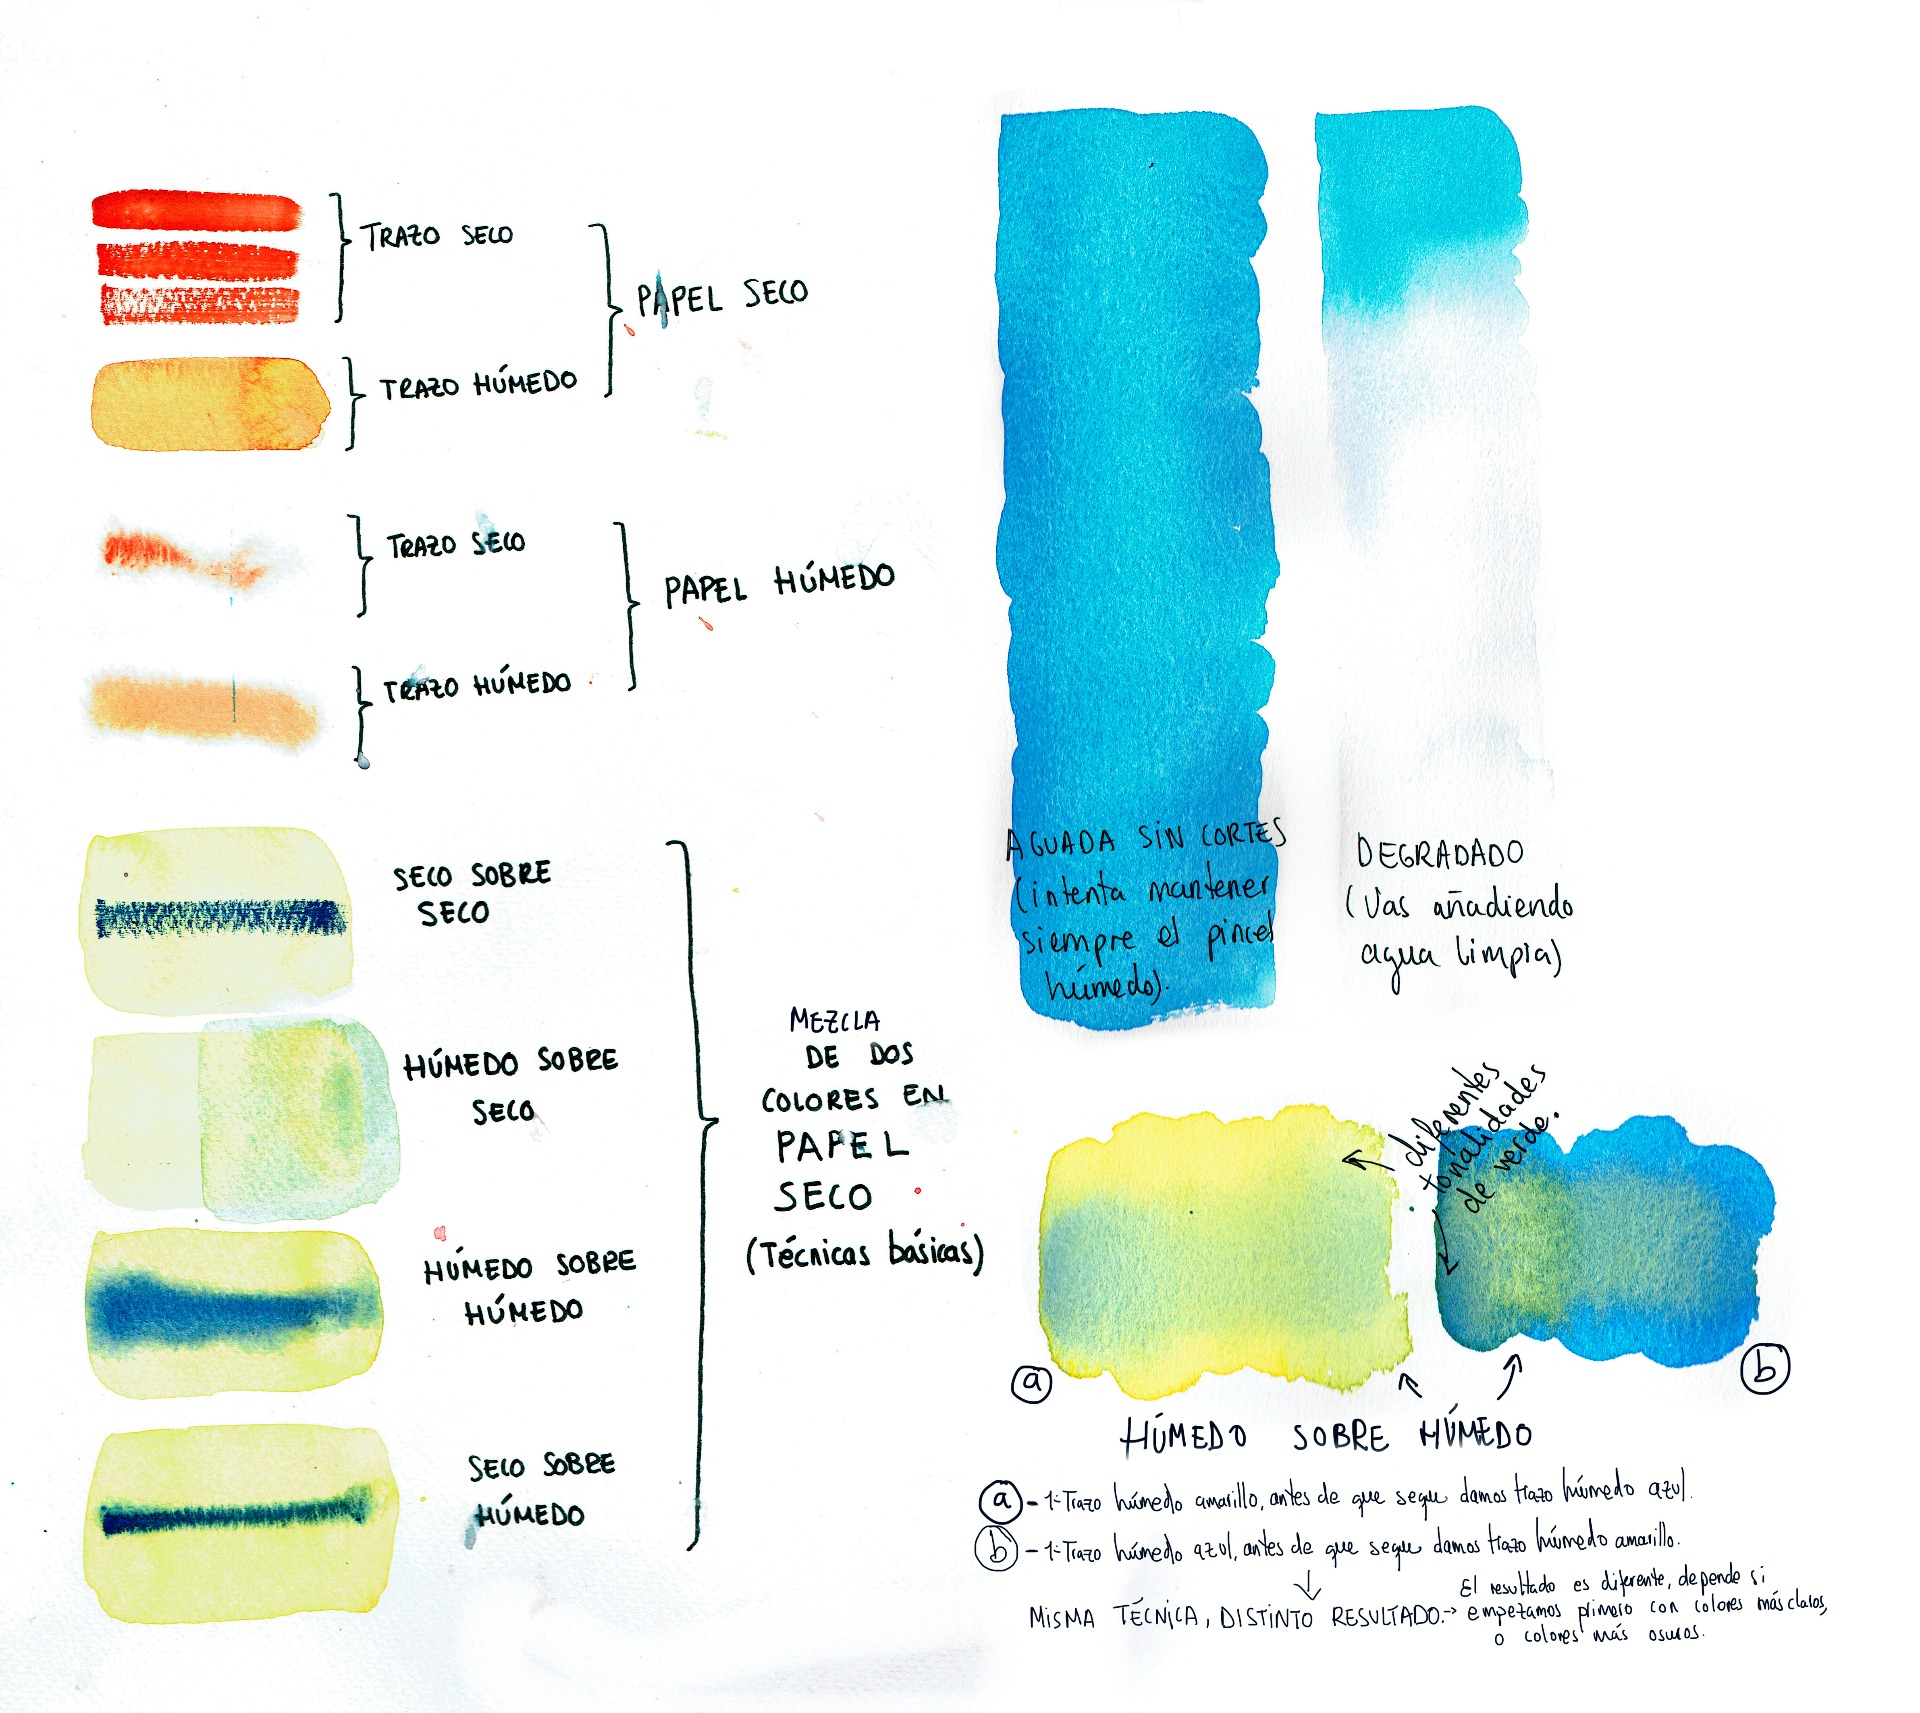 TRAZO SECO
PAPEL SECO
TRAZO HÚMEDO
TRAZO SECO
PAPEL HÚMEDO
TRAZO HÚMEDO
SECO SOBRE
SECO
HÚMEDO SOBRE
SECO
HÚMEDO SOBRE
HÚMEDO
SECO SOBRE
HÚMEDO
MEZCLA
DE DOS
COLORES EN
PAPEL
SECO
(Técnicas básicas)
AGUADA SIN CORTES
(intenta mantener
siempre el pincel
húmedo).
DEGRADADO
(Vas añadiendo
agua limpia)
diferentes
tonalidades
de verde.
a
b
HÚMEDO SOBRE HÚMEDO
a - 1º Trazo húmedo amarillo, antes de que seque damos trazo húmedo azul.
b - 1º Trazo húmedo azul, antes de que seque damos trazo húmedo amarillo.
MISMA TÉCNICA, DISTINTO RESULTADO. →
El resultado es diferente, depende si
empezamos primero con colores más claros,
o colores más oscuros.